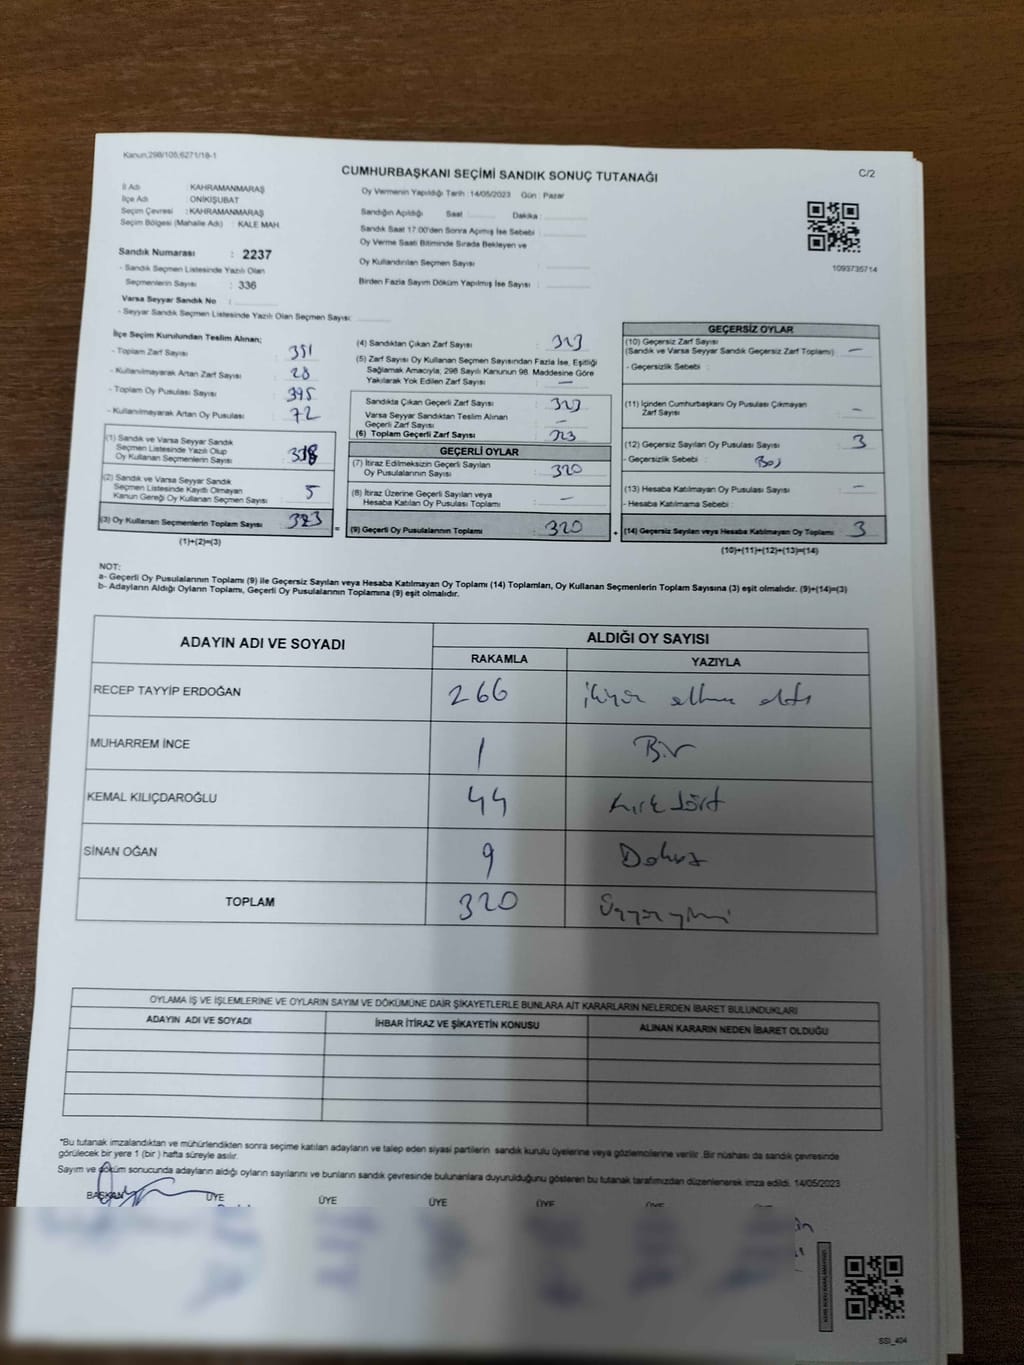 Kanun;298/105;6271/18-1
CUMHURBAŞKANI SEÇİMİ SANDIK SONUÇ TUTANAĞI
C/2
İl Adı : KAHRAMANMARAŞ
İlçe Adı : ONİKİŞUBAT
Seçim Çevresi : KAHRAMANMARAŞ
Seçim Bölgesi (Mahalle Adı) : KALE MAH.
Sandık Numarası : 2237
- Sandık Seçmen Listesinde Yazılı Olan
Seçmenlerin Sayısı : 336
Varsa Seyyar Sandık No :
- Seyyar Sandık Seçmen Listesinde Yazılı Olan Seçmen Sayısı:
Oy Vermenin Yapıldığı Tarih :14/05/2023 Gün : Pazar
Sandığın Açıldığı Saat Dakika :
Sandık Saat 17:00'den Sonra Açımış İse Sebebi :
Oy Verme Saati Bitiminde Sırada Bekleyen ve
Oy Kullandırılan Seçmen Sayısı :
Birden Fazla Sayım Döküm Yapılmış İse Sayısı :
1093735714
İlçe Seçim Kurulundan Teslim Alınan;
- Toplam Zarf Sayısı : 351
- Kullanılmayarak Artan Zarf Sayısı : 28
- Toplam Oy Pusulası Sayısı : 395
- Kullanılmayarak Artan Oy Pusulası : 72
(1) Sandık ve Varsa Seyyar Sandık
Seçmen Listesinde Yazılı Olup
Oy Kullanan Seçmenlerin Sayısı : 318
(2) Sandık ve Varsa Seyyar Sandık
Seçmen Listesinde Kayıtlı Olmayan
Kanun Gereği Oy Kullanan Seçmen Sayısı : 5
(3) Oy Kullanan Seçmenlerin Toplam Sayısı : 323
(1)+(2)=(3)
(4) Sandıktan Çıkan Zarf Sayısı : 323
(5) Zarf Sayısı Oy Kullanan Seçmen Sayısından Fazla İse, Eşitliği
Sağlamak Amacıyla; 298 Sayılı Kanunun 98. Maddesine Göre
Yakılarak Yok Edilen Zarf Sayısı : —
Sandıkta Çıkan Geçerli Zarf Sayısı : 323
Varsa Seyyar Sandıktan Teslim Alınan
Geçerli Zarf Sayısı : —
(6) Toplam Geçerli Zarf Sayısı : 323
GEÇERLİ OYLAR
(7) İtiraz Edilmeksizin Geçerli Sayılan
Oy Pusulalarının Sayısı : 320
(8) İtiraz Üzerine Geçerli Sayılan veya
Hesaba Katılan Oy Pusulalarının Toplamı : —
= (9) Geçerli Oy Pusulalarının Toplamı : 320
GEÇERSİZ OYLAR
(10) Geçersiz Zarf Sayısı
(Sandık ve Varsa Seyyar Sandık Geçersiz Zarf Toplamı) : —
- Geçersizlik Sebebi :
(11) İçinden Cumhurbaşkanı Oy Pusulası Çıkmayan
Zarf Sayısı : —
(12) Geçersiz Sayılan Oy Pusulası Sayısı : 3
- Geçersizlik Sebebi : Boş
(13) Hesaba Katılmayan Oy Pusulası Sayısı : —
- Hesaba Katılmama Sebebi :
+ (14) Geçersiz Sayılan veya Hesaba Katılmayan Oy Toplamı : 3
(10)+(11)+(12)+(13)=(14)
NOT:
a- Geçerli Oy Pusulalarının Toplamı (9) ile Geçersiz Sayılan veya Hesaba Katılmayan Oy Toplamı (14) Toplamları, Oy Kullanan Seçmenlerin Toplam Sayısına (3) eşit olmalıdır. (9)+(14)=(3)
b- Adayların Aldığı Oyların Toplamı, Geçerli Oy Pusulalarının Toplamına (9) eşit olmalıdır.
ADAYIN ADI VE SOYADI
ALDIĞI OY SAYISI
RAKAMLA YAZIYLA
RECEP TAYYİP ERDOĞAN 266 ikiyüz altmış altı
MUHARREM İNCE 1 Bir
KEMAL KILIÇDAROĞLU 44 kırk dört
SİNAN OĞAN 9 Dokuz
TOPLAM 320 Üçyüzyirmi
OYLAMA İŞ VE İŞLEMLERİNE VE OYLARIN SAYIM VE DÖKÜMÜNE DAİR ŞİKAYETLERLE BUNLARA AİT KARARLARIN NELERDEN İBARET BULUNDUKLARI
ADAYIN ADI VE SOYADI İHBAR İTİRAZ VE ŞİKAYETİN KONUSU ALINAN KARARIN NEDEN İBARET OLDUĞU
"Bu tutanak imzalandıktan ve mühürlendikten sonra seçime katılan adayların ve talep eden siyasi partilerin sandık kurulu üyelerine veya gözlemcilerine verilir .Bir nüshası da sandık çevresinde
görülecek bir yere 1 (bir ) hafta süreyle asılır.
Sayım ve döküm sonucunda adayların aldığı oyların sayılarını ve bunların sandık çevresinde bulunanlara duyurulduğunu gösteren bu tutanak tarafımızdan düzenlenerek imza edildi. 14/05/2023
BAŞKAN ÜYE ÜYE ÜYE ÜYE ÜYE
SSI_404